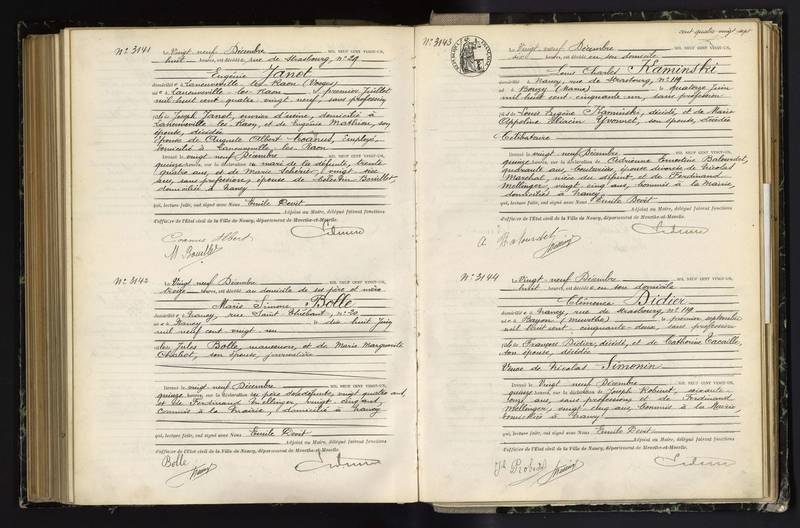 N° 3141
Le Vingt neuf Décembre MIL NEUF CENT VINGT-UN,
huit heures, est décédée rue de Strasbourg, N° 29
Eugénie Janot
domiciliée à Laneuveville les Raon (Vosges)
née à Laneuveville les Raon le premier Juillet
mil huit cent quatre vingt neuf, sans profession
fille de Joseph Janot, ouvrier d'usine, domicilié à
Laneuveville les Raon, et de Eugénie Mathieu, son
épouse, décédée
Epouse de Auguste Albert Coanus, Employé
domicilié à Laneuveville les Raon
Dressé le vingt neuf Décembre MIL NEUF CENT VINGT-UN,
quinze heures, sur la déclaration du mari de la défunte, trente
quatre ans, et de Marie Scherier, vingt six
ans, sans profession, épouse de Bouillet
domiciliée à Nancy
qui, lecture faite, ont signé avec Nous Emile Devit
Adjoint au Maire, délégué faisant fonctions
d'officier de l'Etat civil de la Ville de Nancy, département de Meurthe-et-Moselle.
Coanus Albert
M. Bouillet
N° 3142
Le Vingt neuf Décembre MIL NEUF CENT VINGT-UN,
treize heures, est décédée au domicile de ses père et mère
Marie Simone Bolle
domiciliée à Nancy, rue Saint Thiébaut, N° 20
née à Nancy le dix huit Juin
mil neuf cent vingt un
fille de Jules Bolle, manoeuvre, et de Marie Marguerite
Chabot, son épouse, journalière
Dressé le vingt neuf Décembre MIL NEUF CENT VINGT-UN,
quinze heures, sur la déclaration du père sus défunte, vingt quatre ans,
et de Ferdinand Mellinger, vingt cinq ans,
Commis à la Mairie, domiciliés à Nancy
qui, lecture faite, ont signé avec Nous Emile Devit
Adjoint au Maire, délégué faisant fonctions
d'officier de l'Etat civil de la Ville de Nancy, département de Meurthe-et-Moselle.
Bolle
cent quatre vingt sept
N° 3143
Le Vingt neuf Décembre MIL NEUF CENT VINGT-UN,
dix heures, est décédé en son domicile
Louis Charles Kaminski
domicilié à Nancy, rue de Strasbourg, N° 119
né à Bouzy (Marne) le quatorze Juin
mil huit cent cinquante un, sans profession
fils de Louis Eugène Kaminski, décédé, et de Marie
Appoline Yvonnet, son épouse, décédée
Célibataire
Dressé le vingt neuf Décembre MIL NEUF CENT VINGT-UN,
quinze heures, sur la déclaration de Adrienne Ernestine Balourdet,
quarante ans, Couturière, épouse divorcée de Nicolas
Marchal, nièce du défunt, et de Ferdinand
Mellinger, vingt cinq ans, Commis à la Mairie,
domiciliés à Nancy
qui, lecture faite, ont signé avec Nous Emile Devit
Adjoint au Maire, délégué faisant fonctions
d'officier de l'Etat civil de la Ville de Nancy, département de Meurthe-et-Moselle.
A Balourdet
N° 3144
Le Vingt neuf Décembre MIL NEUF CENT VINGT-UN,
huit heures, est décédée en son domicile
Clémence Didier
domiciliée à Nancy, rue de Strasbourg, N° 119
née à Bayon (Meurthe) le premier septembre
mil huit cent cinquante deux, sans profession
fille de François Didier, décédé, et de Catherine
son épouse, décédée
Veuve de Nicolas Simonin
Dressé le Vingt neuf Décembre MIL NEUF CENT VINGT-UN,
quinze heures, sur la déclaration de Joseph Robinet, soixante
ans, sans profession, et de Ferdinand
Mellinger, vingt cinq ans, Commis à la Mairie
domiciliés à Nancy
qui, lecture faite, ont signé avec Nous Emile Devit
Adjoint au Maire, délégué faisant fonctions
d'officier de l'Etat civil de la Ville de Nancy, département de Meurthe-et-Moselle.